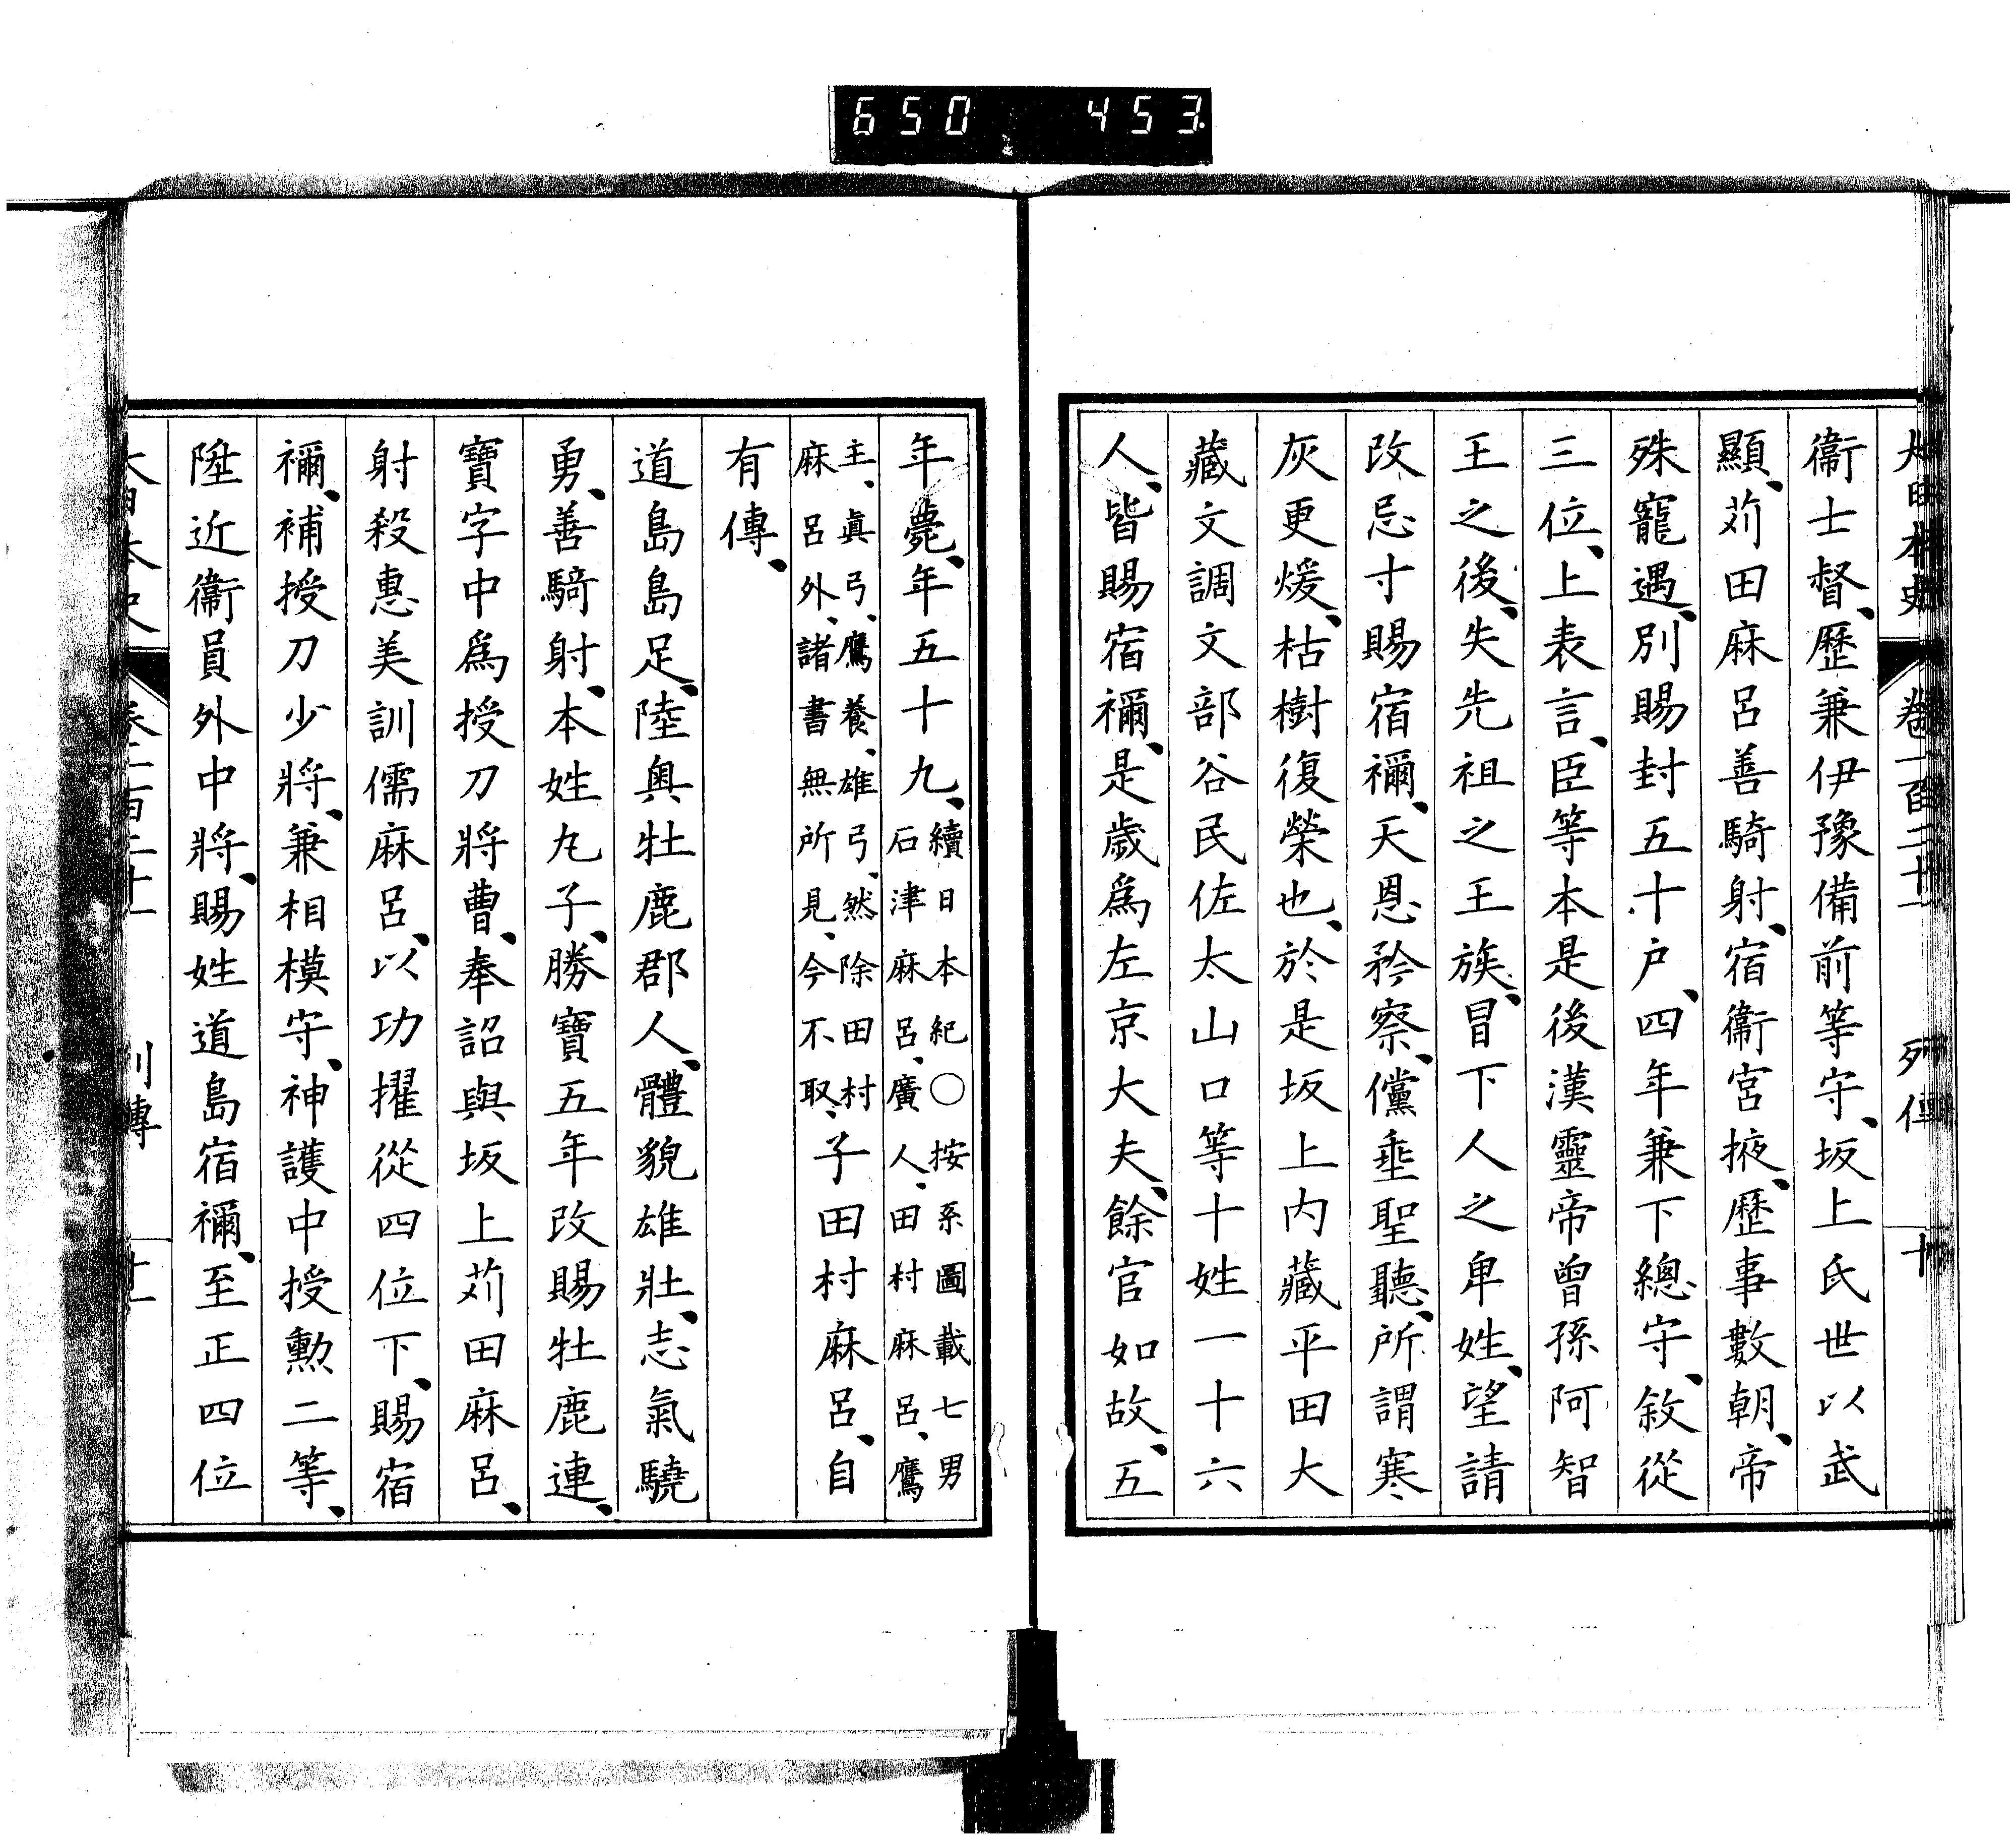 650 453
大日本史 卷一百二十一 列傳 十
衞士督、歷兼伊豫備前等守、坂上氏世以武
顯、苅田麻呂善騎射、宿衞宮掖、歷事數朝、帝
殊寵遇、別賜封五十戶、四年兼下總守、敘從
三位、上表言、臣等本是後漢靈帝曾孫阿智
王之後、失先祖之王族、冒下人之卑姓、望請
改忌寸賜宿禰、天恩矜察、儻垂聖聽、所謂寒
灰更煖、枯樹復榮也、於是坂上內藏平田大
藏文調文部谷民佐太山口等十姓一十六
人、皆賜宿禰、是歲爲左京大夫、餘官如故、五
年薨、年五十九、續日本紀〇按系圖載七男
石津麻呂、廣人、田村麻呂、鷹
主、眞弓、鷹養、雄弓、然除田村
麻呂外、諸書無所見、今不取、子田村麻呂、自
有傳、
道島島足、陸奧牡鹿郡人、體貌雄壯、志氣驍
勇、善騎射、本姓丸子、勝寶五年改賜牡鹿連、
寶字中爲授刀將曹、奉詔與坂上苅田麻呂、
射殺惠美訓儒麻呂、以功擢從四位下、賜宿
禰、補授刀少將、兼相模守、神護中授勳二等、
陞近衞員外中將、賜姓道島宿禰、至正四位
大日本史 卷一百二十一 列傳 十一